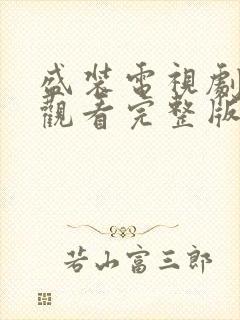 盛裝電視劇
觀看完整版
若山富三郎